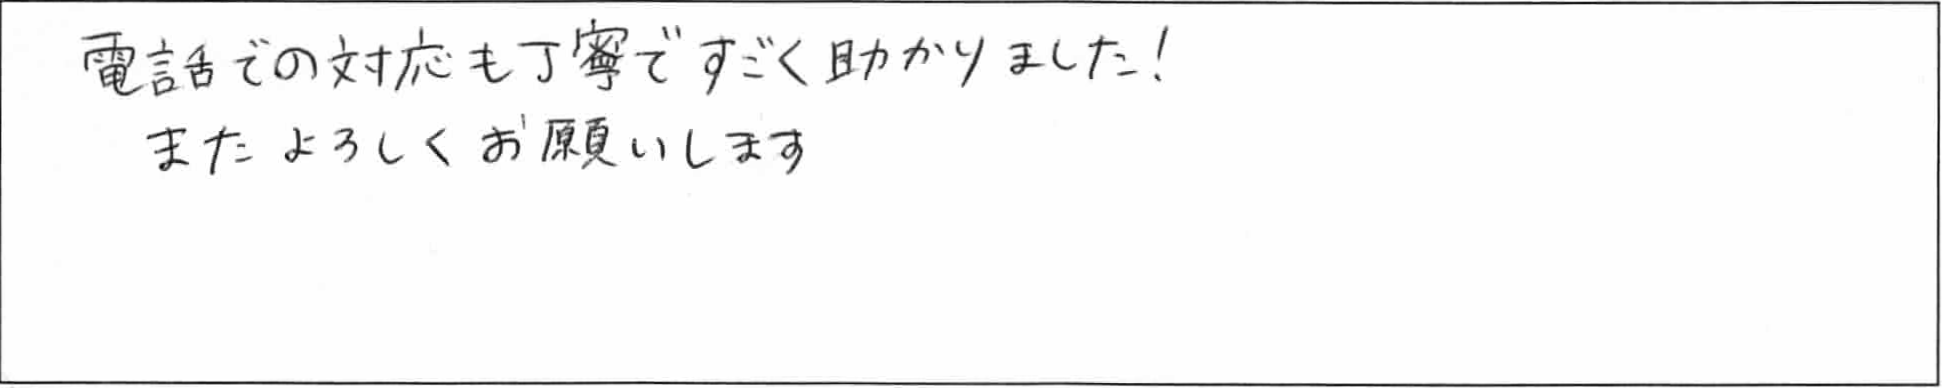 電話での対応も丁寧ですごく助かりました!
またよろしくお願いします